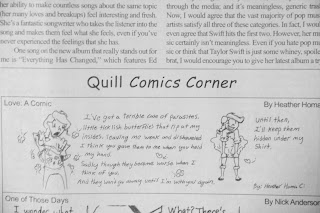 ability to make countless songs about the same topic
(her many loves and breakups) feel interesting and fresh.
She's a fantastic songwriter who takes the listener into the
song and makes them feel what she feels, even if you've
never experienced the feelings that she has.
One song on the new album that really stands out for
me is "Everything Has Changed," which features Ed
through the media, and it's meaningless, generic trash
Now, I would agree that the vast majority of pop music
artists satisfy all three of these categories. In fact, I would
even agree that Swift hits the first two. However, her mu
sic certainly isn't meaningless. Even if you hate pop mu
sic or think that Taylor Swift is just some whiny, spoiled
brat, I would encourage you to give her latest album a try
Quill Comics Corner
Love: A Comic
By Heather Homa
I've got a terrible case of parasites,
little ticklish butterflies that rip at my
insides, leaving me weak and disheveled
I think you gave them to me when you held
my hand.
Sadly though they become worse when I
think of you.
And they won't go away until I'm with you again.
Until then,
I'll keep them
hidden under my
Shirt.
By: Heather Homa
One of Those Days
By Nick Anderson
I wonder what
What? There's